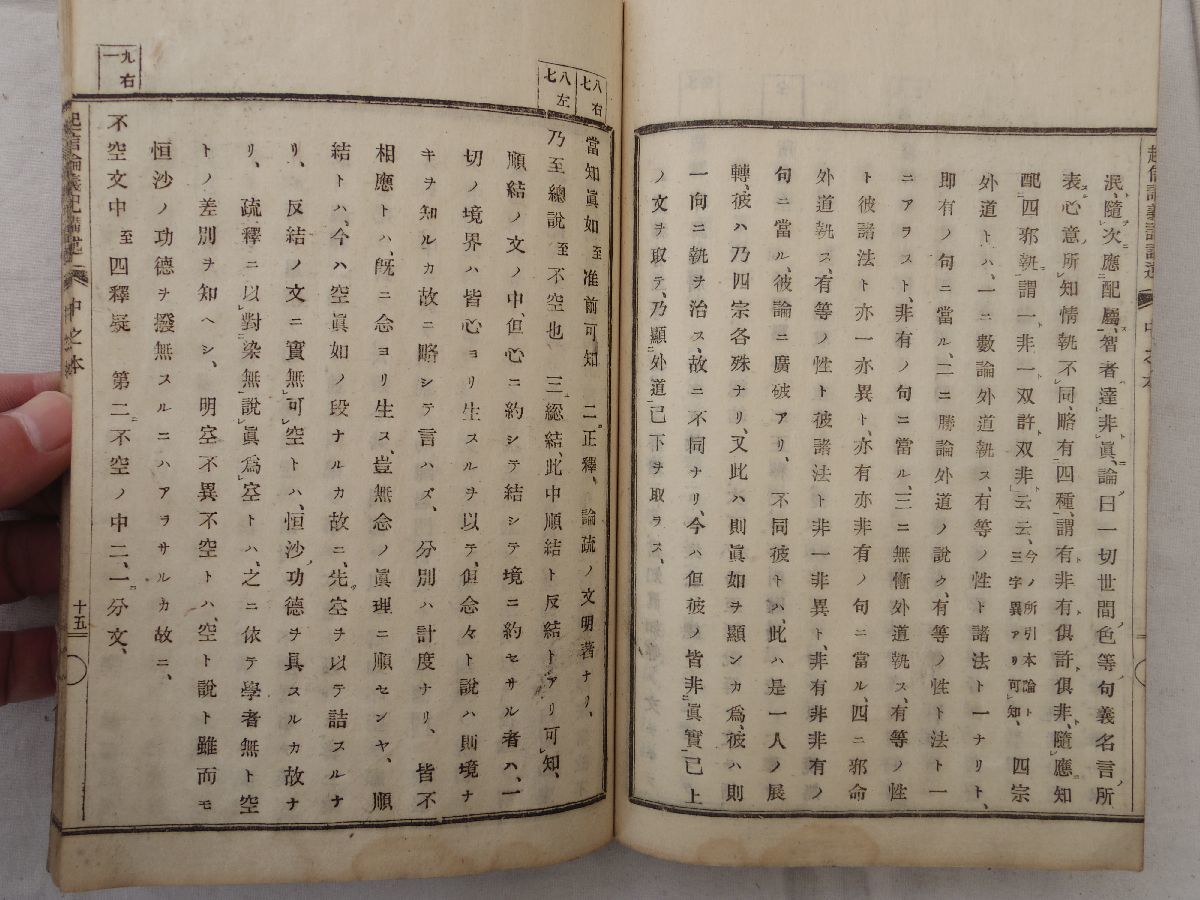 泯、隨次應配屬、智者達非眞、論曰一切世間色等句義名言所
表心意所知情執不同、略有四種、謂有非有俱許俱非、隨應知
配四邪執謂一非一双許双非云云、今ノ所引本論ト三字異アリ可知、四宗
外道トハ、一ニ數論外道執ス、有等ノ性ト諸法ト一ナリト、
即有ノ句ニ當ル、二ニ勝論外道ノ說ク、有等ノ性ト法ト一
ニアラスト、非有ノ句ニ當ル、三ニ無慚外道執ス、有等ノ性
ト彼諸法ト亦一亦異ト、亦有亦非有ノ句ニ當ル、四ニ邪命
外道執ス、有等ノ性ト彼諸法ト非一非異ト、非有非非有ノ
句ニ當ル、彼論ニ廣破アリ、不同彼トハ、此ハ是一人ノ展
轉、彼ハ乃四宗各殊ナリ、又此ハ則眞如ヲ顯ンカ爲、彼ハ則
一向ニ執ヲ治ス、故ニ不同ナリ、今ハ但彼ノ皆非眞實已上
ノ文ヲ取テ、乃顯外道已下ヲ取ラス、
八右
七
當知眞如至准前可知 二正釋、論疏ノ文明著ナリ、
八左
七
乃至總說至不空也 三総結、此中順結ト反結トアリ可知、
順結ノ文ノ中、但心ニ約シテ結シテ境ニ約セサル者ハ、一
切ノ境界ハ皆心ヨリ生スルヲ以テ、但念々ト說ハ則境ナ
キヲ知ルカ故ニ略シテ言ハズ、分別ハ計度ナリ、皆不
相應トハ、旣ニ念ヨリ生ス、豈無念ノ眞理ニ順センヤ、順
結トハ、今ハ空眞如ノ段ナルカ故ニ、先空ヲ以テ詰スルナ
リ、反結ノ文ニ實無可空トハ、恒沙功德ヲ具スルカ故ナ
リ、疏釋ニ以對染無說眞爲空トハ、之ニ依テ學者無ト空
トノ差別ヲ知ヘシ、明空不異不空トハ、空ト說ト雖而モ
恒沙ノ功德ヲ撥無スルニハアラサルカ故ニ、
九右
一
不空文中至四釋疑 第二不空ノ中二、一分文、
起信論義記講述 中之本 十五